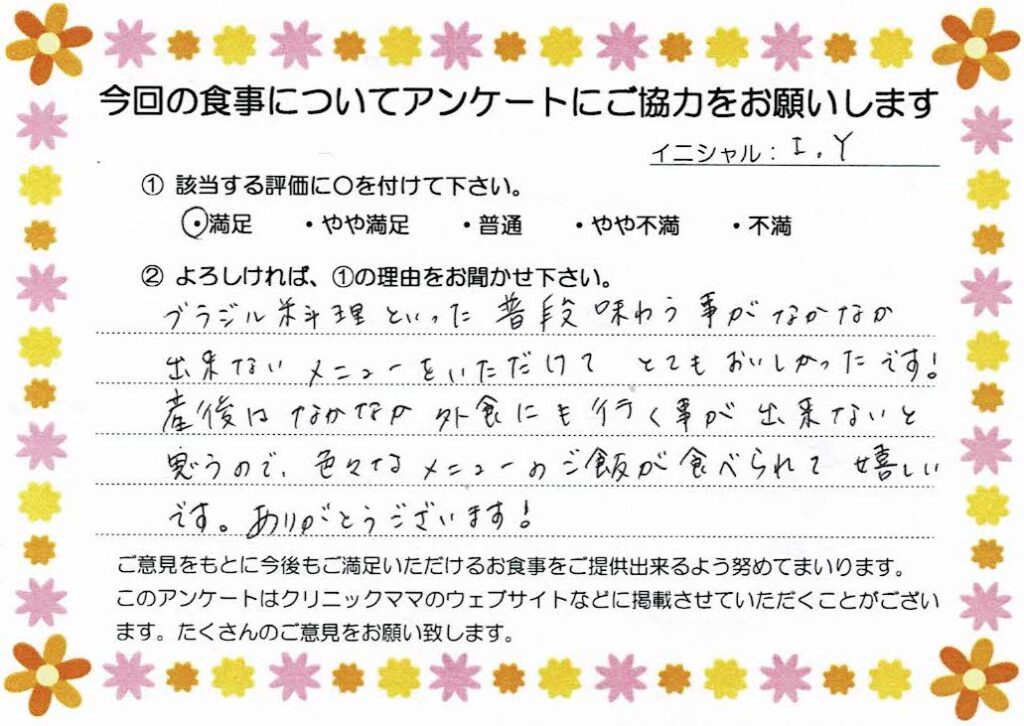 今回の食事についてアンケートにご協力をお願いします
イニシャル：I.Y
① 該当する評価に○を付けて下さい。
・満足 ・やや満足 ・普通 ・やや不満 ・不満
② よろしければ、①の理由をお聞かせ下さい。
ブラジル料理といった普段味わう事がなかなか
出来ないメニューをいただけてとてもおいしかったです!
産後はなかなか外食にも行く事が出来ないと
思うので、色々なメニューのご飯が食べられて嬉しい
です。ありがとうございます!
ご意見をもとに今後もご満足いただけるお食事をご提供出来るよう努めてまいります。
このアンケートはクリニックママのウェブサイトなどに掲載させていただくことがござい
ます。たくさんのご意見をお願い致します。